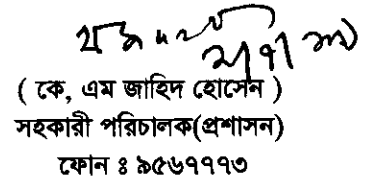 ( কে, এম জাহিদ হোসেন )
সহকারী পরিচালক(প্রশাসন)
ফোন ঃ ৯৫৬৭৭৭৩